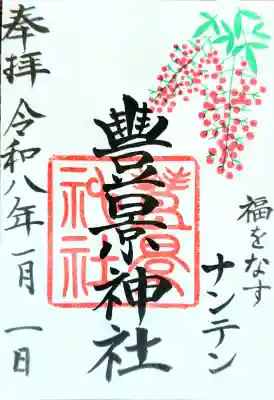 福をなす
ナンテン
豊景神社
豊景神社
奉拝 令和八年一月一日